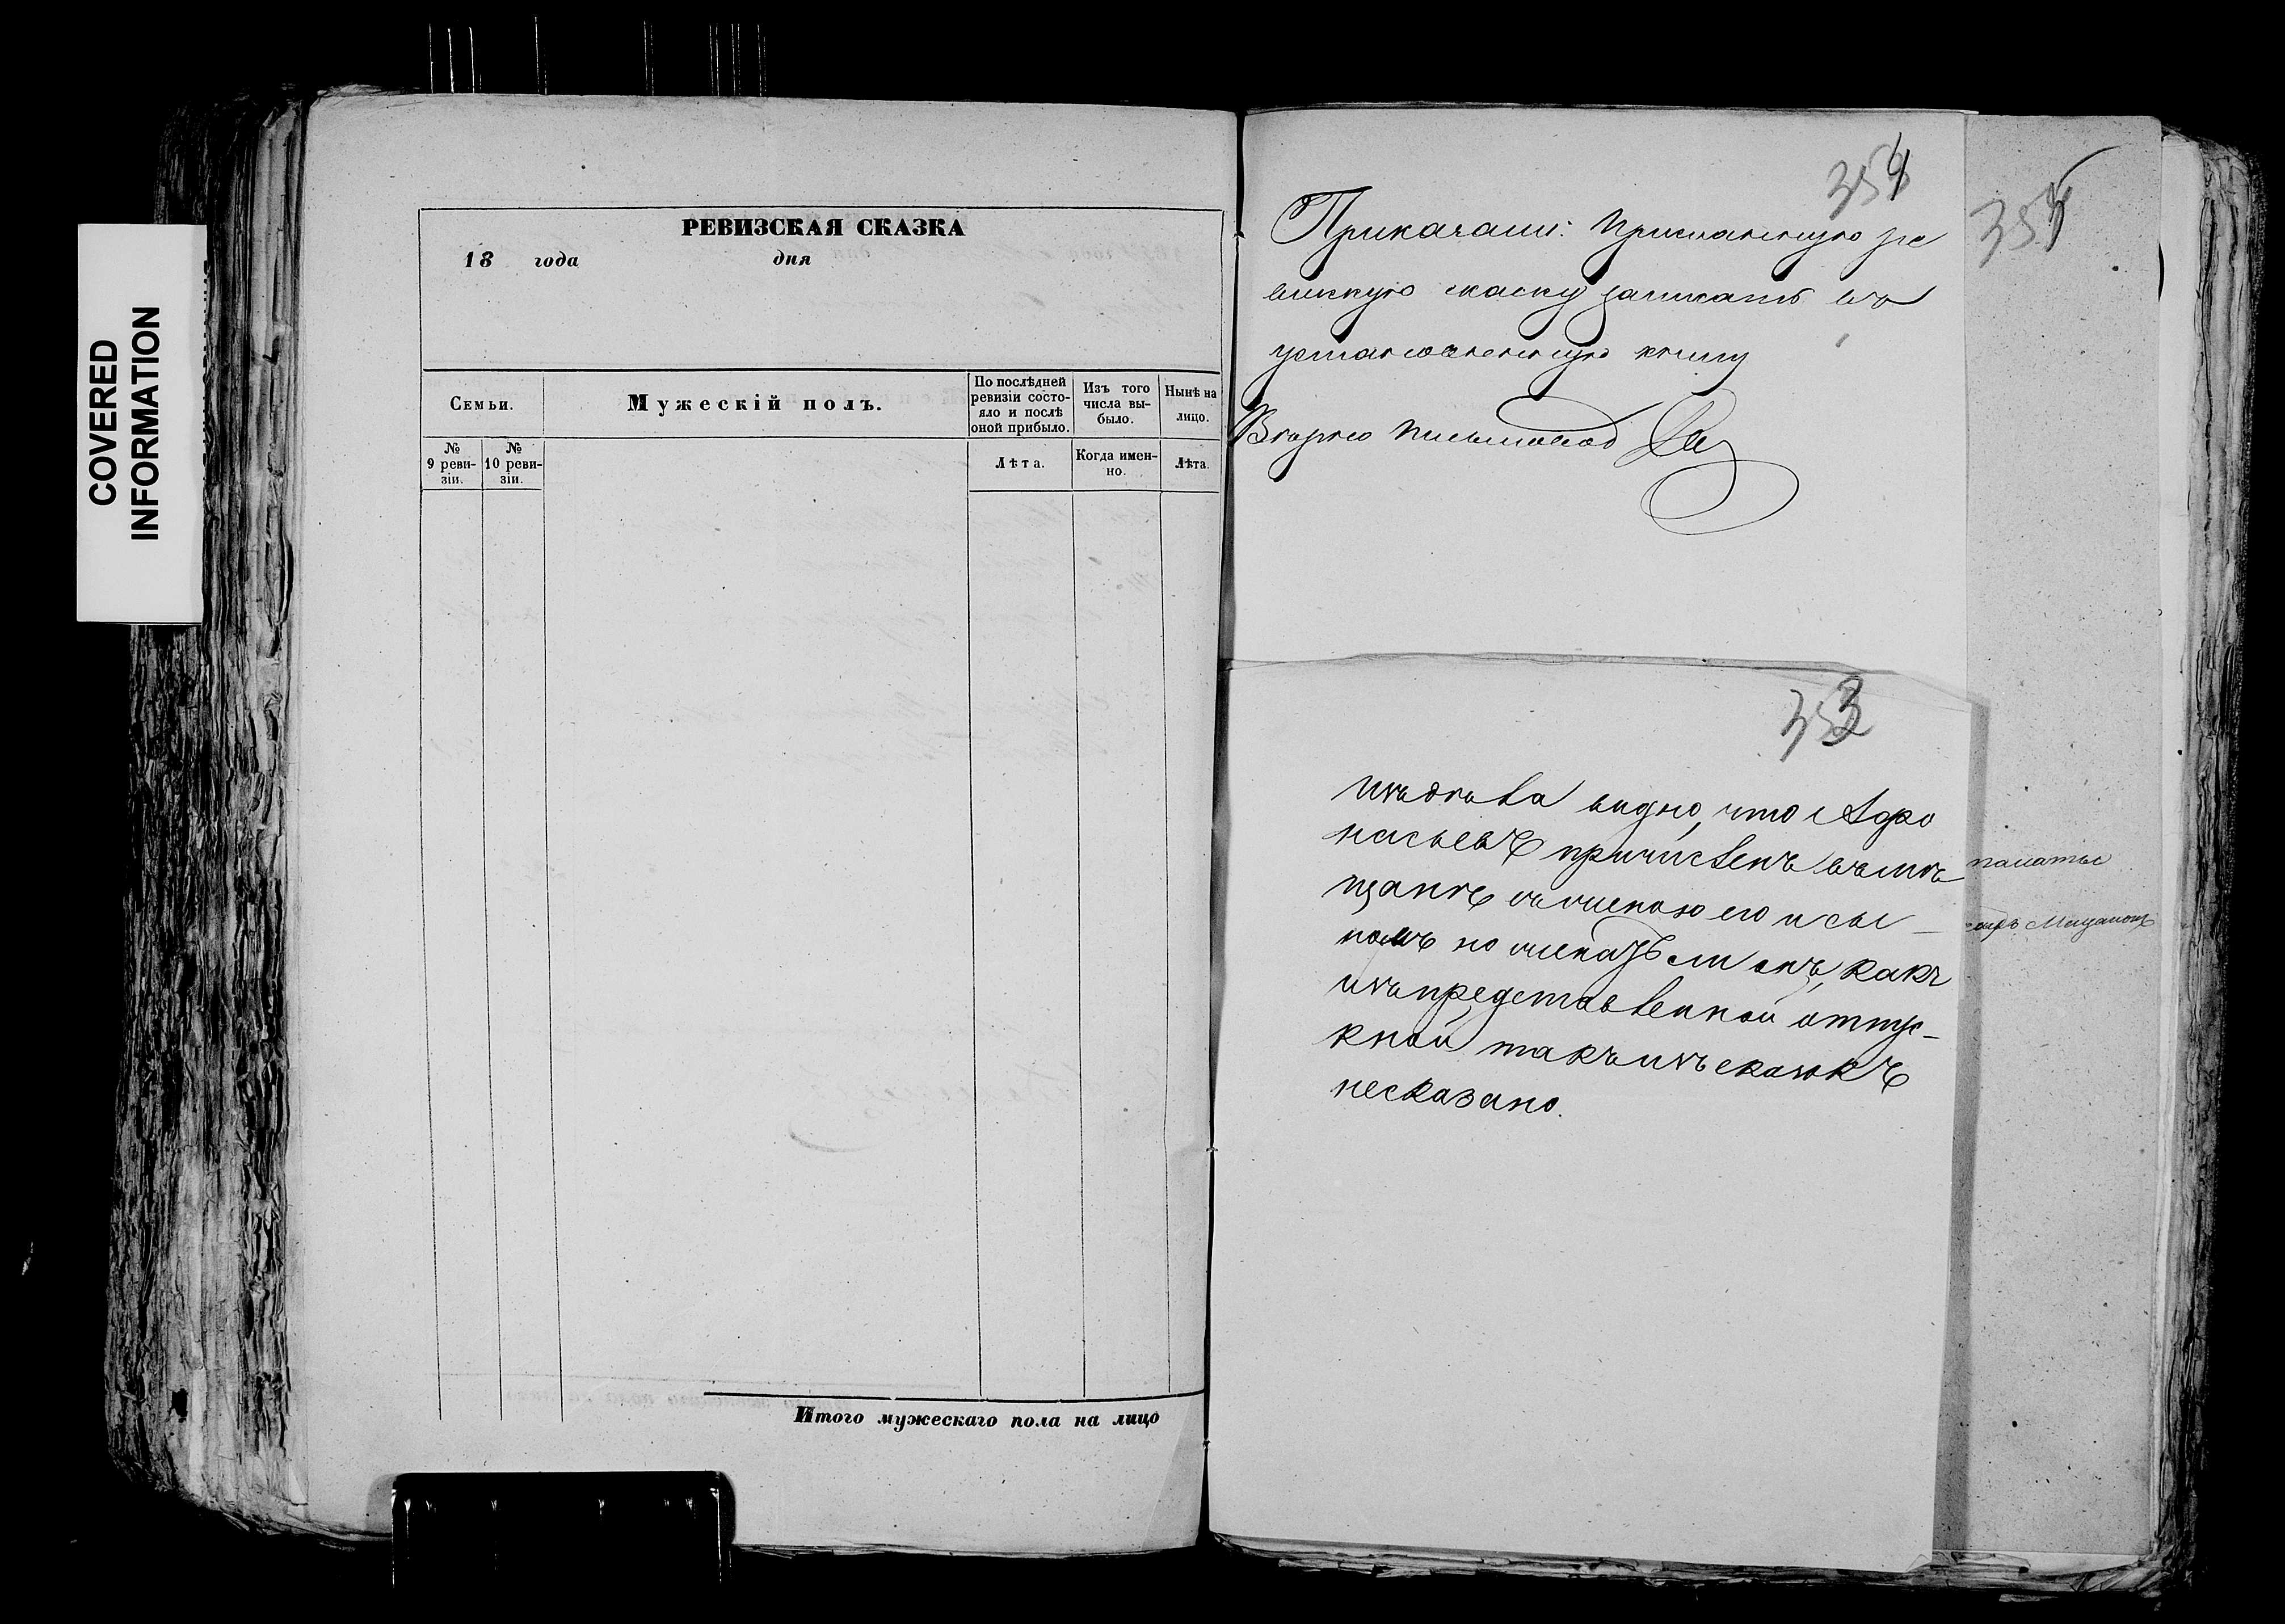 COVERED
INFORMATION
РЕВИЗСКАЯ СКАЗКА
18 года дня
Семьи.
Мужескій полъ.
По послѣдней
ревизіи состо-
яло и послѣ
оной прибыло.
Изъ того
числа вы-
было.
Нынѣ на
лицо.
№
9 реви-
зіи.
№
10 реви-
зіи.
Лѣта.
Когда имен-
но.
Лѣта.
Итого мужескаго пола на лицо
354
Приказали: присланную ре
вискую скаску записать въ
установленную книгу
Вѣрно письмовод
353
изъ дѣла видно, что Афо
насьевъ причисленъ въ мѣ
щане съ женою его и сы-
номъ но женатъ ли онъ, какъ
изъ представленной отпус-
кной такъ изъ сказокъ
несказано.
354
палаты
Мещанот